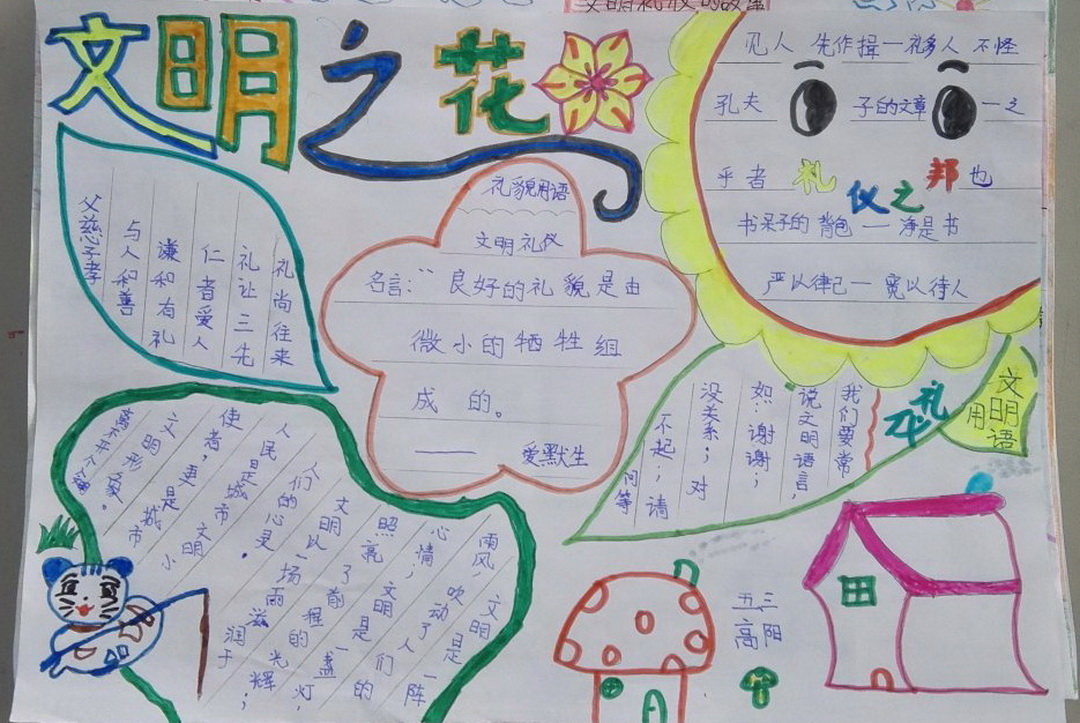 文明之花
见人先作揖一礼多人不怪
孔夫子的文章一之
乎者礼仪之邦也
书呆子的背包一净是书
严以律己一宽以待人
礼尚往来
礼让三先
仁者爱人
谦和有礼
与人和善
父慈子孝
礼貌用语
文明礼仪
名言:"良好的礼貌是由
微小的牺牲组
成的。
——爱默生
文明
用语
礼
我们要常
说文明语言,
如:谢谢;
没关系;对
不起;请
问等
文明是一阵
雨风,吹动了人们的
心情;文明是一盏灯,
照亮了前程的光辉;
文明以一场雨滋润于
人们的心灵.
人民是城市文明小
使者,更是城市
文明形象。
五三
高阳